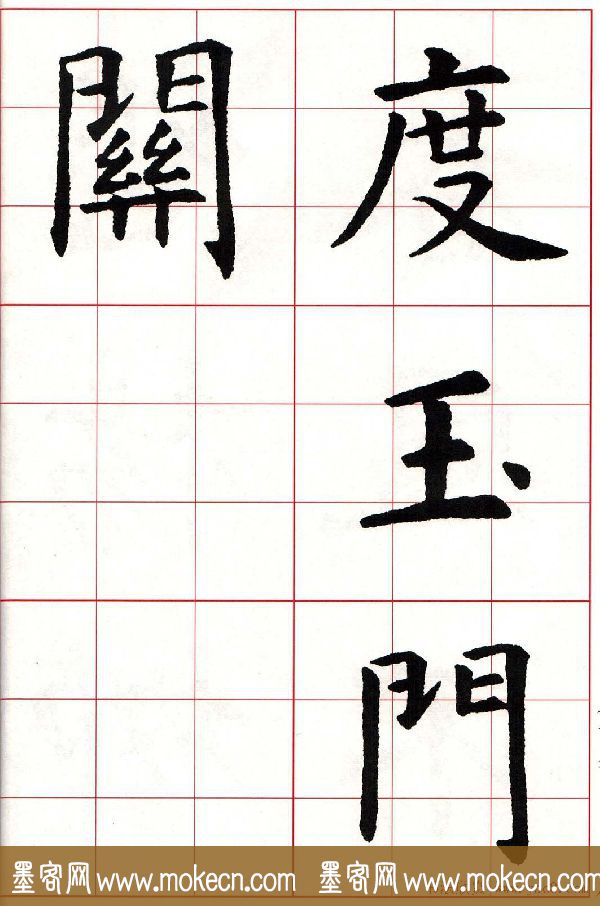 度玉門
關
墨客网 www.mokecn.com 墨客网 www.mokecn.com